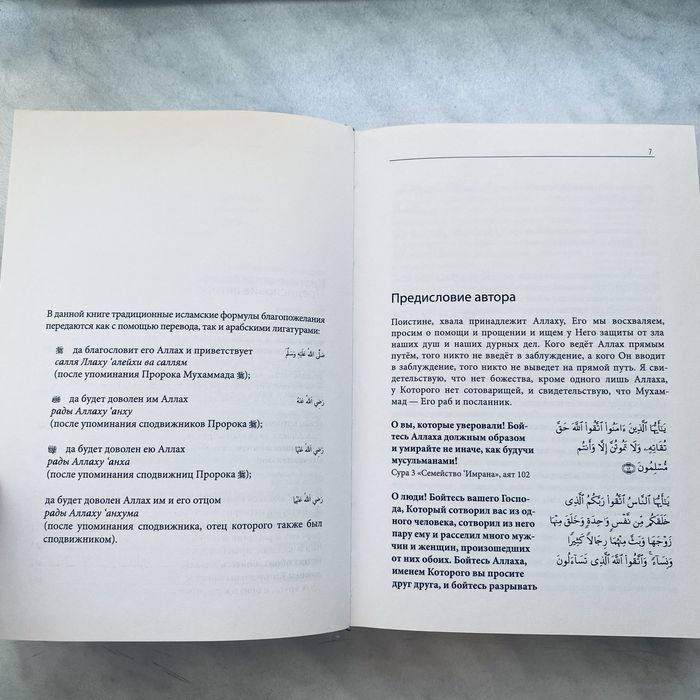 В данной книге традиционные исламские формулы благопожелания
передаются как с помощью перевода, так и арабскими лигатурами:
ﷺ да благословит его Аллах и приветствует صَلَّى اللهُ عَلَيْهِ وَسَلَّمَ
салля Ллаху ‘алейхи ва саллям
(после упоминания Пророка Мухаммада ﷺ);
да будет доволен им Аллах رَضِيَ اللهُ عَنْهُ
рады Аллаху ‘анху
(после упоминания сподвижников Пророка ﷺ);
да будет доволен ею Аллах رَضِيَ اللهُ عَنْهَا
рады Аллаху ‘анха
(после упоминания сподвижниц Пророка ﷺ);
да будет доволен Аллах им и его отцом
рады Аллаху ‘анхума
(после упоминания сподвижника, отец которого также был
сподвижником).
7
Предисловие автора
Поистине, хвала принадлежит Аллаху, Его мы восхваляем,
просим о помощи и прощении и ищем у Него защиты от зла
наших душ и наших дурных дел. Кого ведёт Аллах прямым
путём, того никто не введёт в заблуждение, а кого Он вводит
в заблуждение, того никто не выведет на прямой путь. Я сви-
детельствую, что нет божества, кроме одного лишь Аллаха,
у Которого нет сотоварищей, и свидетельствую, что Мухам-
мад — Его раб и посланник.
О вы, которые уверовали! Бой-
тесь Аллаха должным образом
и умирайте не иначе, как будучи
мусульманами!
Сура 3 «Семейство ‘Имрана», аят 102
يَٰٓأَيُّهَا ٱلَّذِينَ ءَامَنُوا۟ ٱتَّقُوا۟ ٱللَّهَ حَقَّ
تُقَاتِهِۦ وَلَا تَمُوتُنَّ إِلَّا وَأَنتُم
مُّسْلِمُونَ
О люди! Бойтесь вашего Госпо-
да, Который сотворил вас из од-
ного человека, сотворил из него
пару ему и расселил много муж-
чин и женщин, произошедших
от них обоих. Бойтесь Аллаха,
именем Которого вы просите
друг друга, и бойтесь разрывать
يَٰٓأَيُّهَا ٱلنَّاسُ ٱتَّقُوا۟ رَبَّكُمُ ٱلَّذِى
خَلَقَكُم مِّن نَّفْسٍ وَٰحِدَةٍ وَخَلَقَ مِنْهَا
زَوْجَهَا وَبَثَّ مِنْهُمَا رِجَالًا كَثِيرًا
وَنِسَآءً ۚ وَٱتَّقُوا۟ ٱللَّهَ ٱلَّذِى تَسَآءَلُونَ